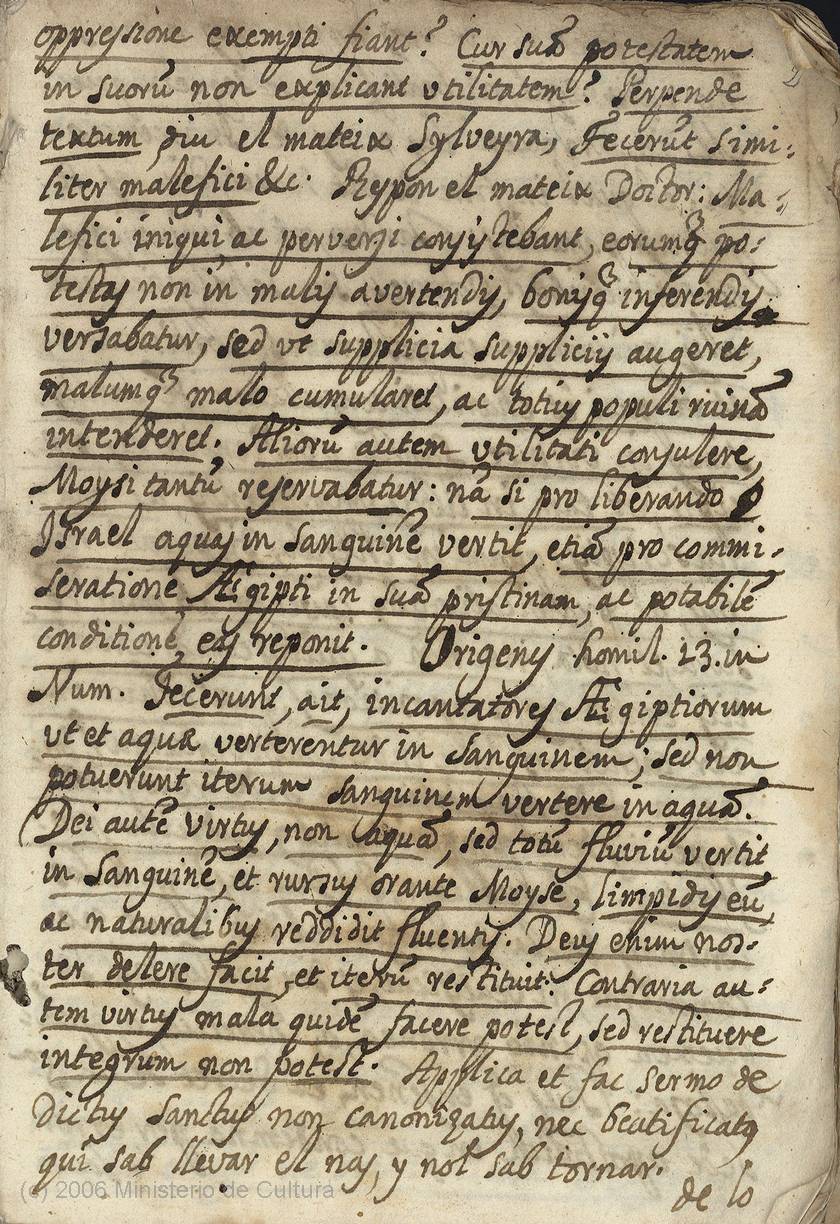 oppressione exempti fiant? Cur suã potestatem
in suorũ non explicant vtilitatem? Perpende
textum, diu el mateix Sylveyra, Fecerũt simi-
liter malefici &c. Respon el mateix Doctor: Ma-
lefici iniqui, ac perversi consistebant, eorumq̃ po-
testas non in malis avertendis, bonisq̃ inferendis
versabatur, sed vt supplicia suppliciis augeret,
malumq̃ malo cumularet, ac totius populi ruinã
intenderet. Aliorũ autem vtilitati consulere,
Moysi tantũ reservabatur: nã si pro liberando
Israel aquas in sanguinẽ vertit, etiã pro commi-
seratione Ægipti in suã pristinam, ac potabilẽ
conditionẽ eas reponit. Origenes homil. 13. in
Num. Fecerunt, ait, incantatores Ægiptiorum
vt et aquæ verterentur in sanguinem; sed non
potuerunt iterum sanguinem vertere in aquã.
Dei autẽ virtus, non aquã, sed totũ fluviũ vertit
in sanguinẽ, et rursus orante Moyse, limpidis eũ,
ac naturalibus reddidit fluentis. Deus enim nos-
ter delere facit, et iterũ restituit. Contraria au-
tem virtus mala quidẽ facere potest, sed restituere
integrum non potest. Applica et fac sermo de
dictus Sanctus non canonizatus, nec beatificatus
qui sab llevar el nas, y nol sab tornar.
de lo
2
(c) 2006 Ministerio de Cultura